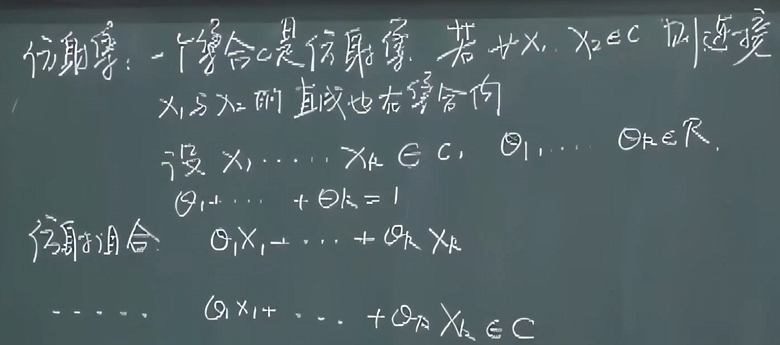 仿射集：一个集合C是仿射集，若∀X₁，X₂∈C 则连接
X₁与X₂的直线也在集合内
设 X₁ ······ Xₖ ∈ C， θ₁，······ θₖ∈R，
θ₁+ ··· + θₖ = 1
仿射组合： θ₁X₁ + ··· + θₖXₖ
······ θ₁X₁+ ··· + θₖXₖ ∈ C